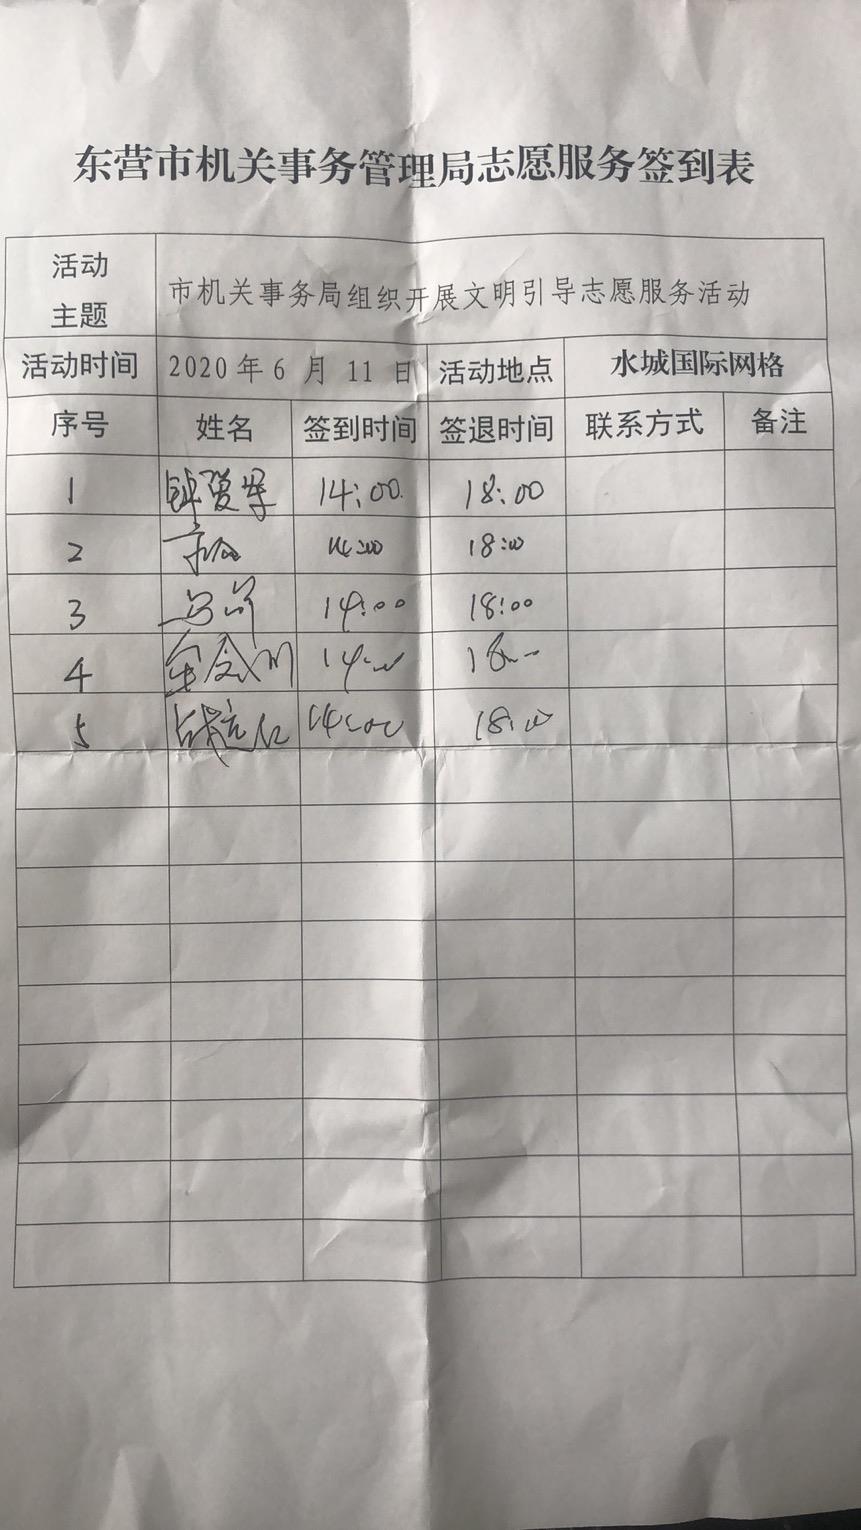 东营市机关事务管理局志愿服务签到表
活动主题 市机关事务局组织开展文明引导志愿服务活动
活动时间 2020年6月11日 活动地点 水城国际网格
序号 姓名 签到时间 签退时间 联系方式 备注
1 14:00 18:00
2 14:00 18:00
3 14:00 18:00
4 14:00 18:00
5 14:00 18:00